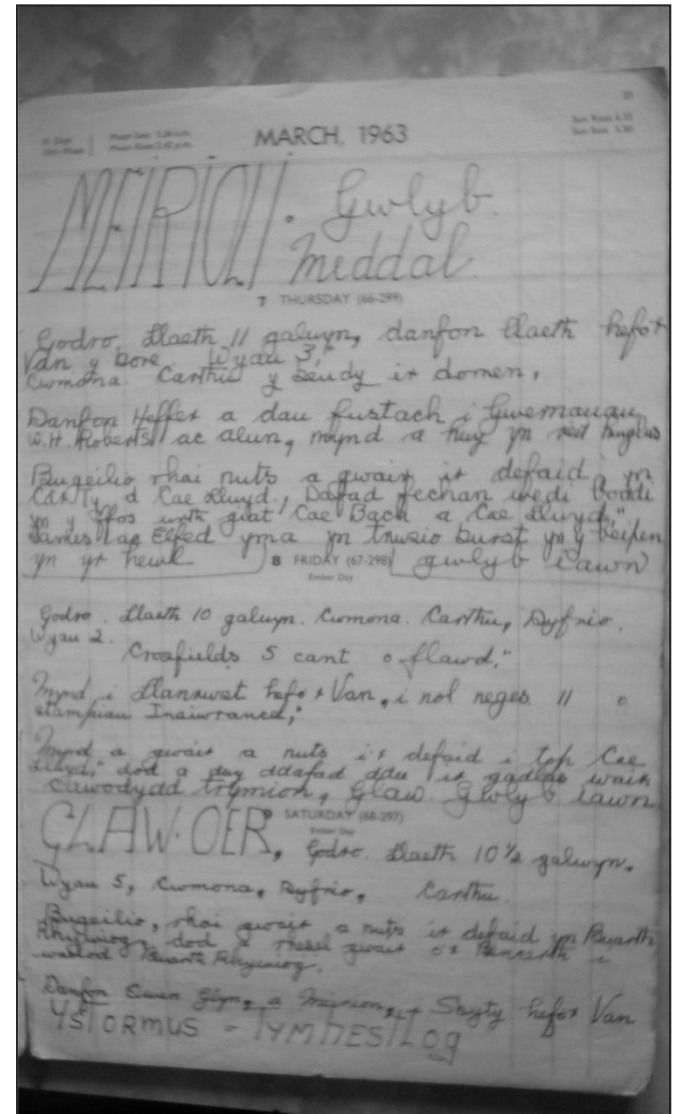 31
MARCH, 1963
Sun Rises 6.35
Sun Sets 5.50
MEIRIOLI. Gwlyb.
Meddal.
7 THURSDAY (66-299)
Godro, Llaeth 11 galwyn, danfon llaeth hefo'r
Van y bore. Wyau 3,"
Cwmona. Carthu y Beudy i'r domen,
Danfon Heffer a dau fustach i Gwernauau
W.H. Roberts ac Alun, mynd a huy yn
Bugeilio rhai nuts a gwair i'r defaid, yn
Cae Ty a Cae Llwyd, Dafad fechan wedi boddi
yn y ffos wrth giat Cae Bach a Cae Llwyd,"
James ac Elfed yma yn trwsio burst yn y beipen
yn yr hewl
8 FRIDAY (67-298) gwlyb iawn
Ember Day
Godro. Llaeth 10 galwyn. Cwmona. Carthu, Dyfrio.
Wyau 2.
Crosfields 5 cant o flawd,"
Mynd i Llanrwst hefo'r Van, i nol neges 11 o
stampiau Insiwrance,"
Mynd a gwair a nuts i'r defaid i top Cae
Llwyd," dod a duy ddafad ddu i'r gadlas
Cawodydd trymion, Glaw. Gwlyb iawn
9 SATURDAY (68-297)
Ember Day
GLAW. OER, Godro. Llaeth 10½ galwyn.
Wyau 5, Cwmona, Dyfrio, Carthu.
Bugeilio, rhai gwair a nuts i'r defaid yn Buarth
Rhyiniog, dod a gwair o'r Penrerth i
waelod Buarth Rhyiniog.
Danfon Ewen Glyn, a Meirion, i Sbyty hefo'r Van
YSTORMUS = TYMHESTLOG